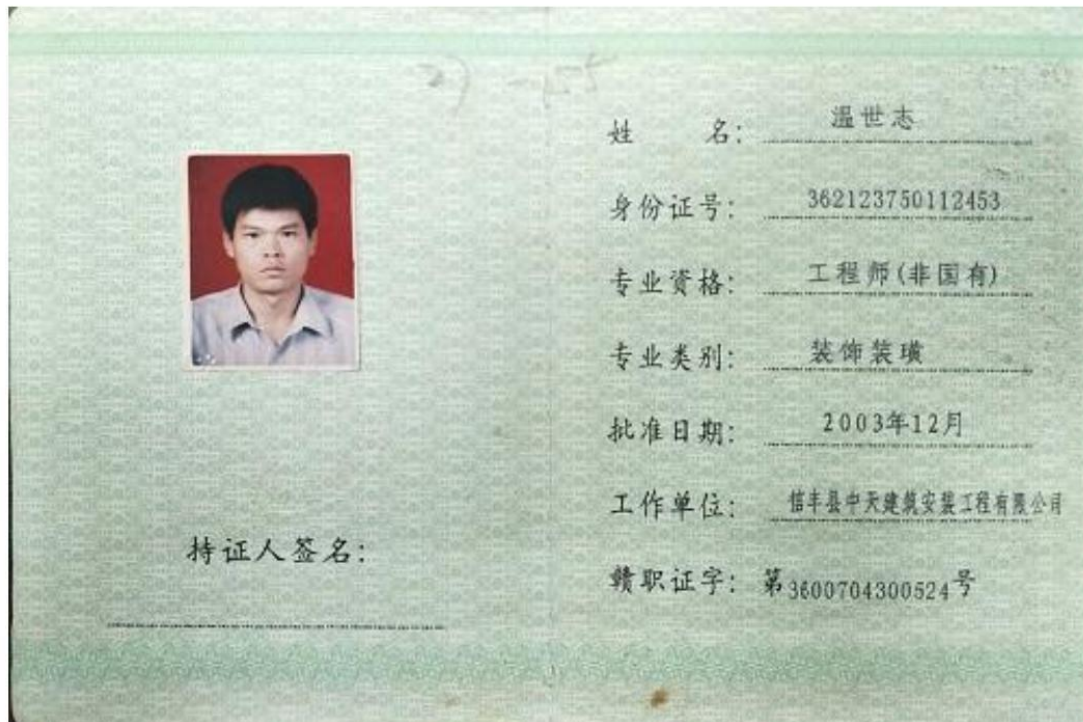 姓 名: 温世志
身份证号: 362123750112453
专业资格: 工程师(非国有)
专业类别: 装饰装璜
批准日期: 2003年12月
工作单位: 信丰县中天建筑安装工程有限公司
赣职证字: 第3600704300524号
持证人签名: